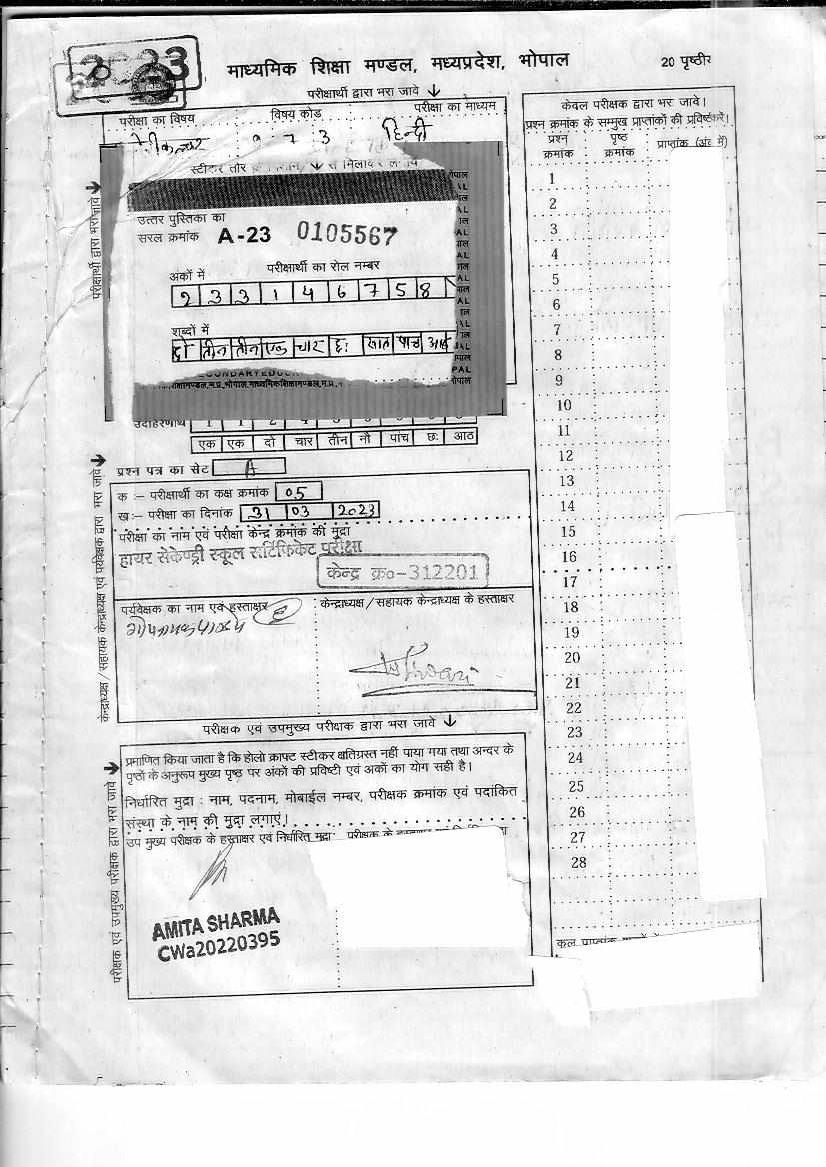 2023
माध्यमिक शिक्षा मण्डल, मध्यप्रदेश, भोपाल
20 पृष्ठीय
परीक्षार्थी द्वारा भरा जावे ↓
परीक्षा का विषय विषय कोड परीक्षा का माध्यम
9 7 3 हिन्दी
उत्तर पुस्तिका का
सरल क्रमांक A-23 0105567
परीक्षार्थी का रोल नम्बर
अंकों में
2 3 3 1 4 6 7 5 8
शब्दों में
दो तीन तीन एक चार छः सात पाच आठ
उदाहरणार्थ
एक एक दो चार तीन नौ पांच छः आठ
प्रश्न पत्र का सेट A
क :– परीक्षार्थी का कक्ष क्रमांक 05
ख :– परीक्षा का दिनांक 31 03 2023
परीक्षा का नाम एवं परीक्षा केन्द्र क्रमांक की मुद्रा
हायर सेकेण्ड्री स्कूल सर्टिफिकेट परीक्षा
केन्द्र क्र०-312201
पर्यवेक्षक का नाम एवं हस्ताक्षर
केन्द्राध्यक्ष / सहायक केन्द्राध्यक्ष के हस्ताक्षर
परीक्षक एवं उपमुख्य परीक्षक द्वारा भरा जावे ↓
प्रमाणित किया जाता है कि होलो क्राफ्ट स्टीकर क्षतिग्रस्त नहीं पाया गया तथा अन्दर के
पृष्ठों के अनुरूप मुख्य पृष्ठ पर अंकों की प्रविष्टी एवं अंकों का योग सही है।
निर्धारित मुद्रा : नाम, पदनाम, मोबाईल नम्बर, परीक्षक क्रमांक एवं पदांकित
संस्था के नाम की मुद्रा लगाएं।
उप मुख्य परीक्षक के हस्ताक्षर एवं निर्धारित मुद्रा
AMITA SHARMA
CWa20220395
परीक्षार्थी द्वारा भरा जावे
केन्द्राध्यक्ष / सहायक केन्द्राध्यक्ष एवं पर्यवेक्षक द्वारा भरा जावे
परीक्षक एवं उपमुख्य परीक्षक द्वारा भरा जावे
केवल परीक्षक द्वारा भरा जावे।
प्रश्न क्रमांक के सम्मुख प्राप्तांकों की प्रविष्टि करें।
प्रश्न पृष्ठ प्राप्तांक (अंकों में)
क्रमांक क्रमांक
1
2
3
4
5
6
7
8
9
10
11
12
13
14
15
16
17
18
19
20
21
22
23
24
25
26
27
28
कुल प्राप्तांक